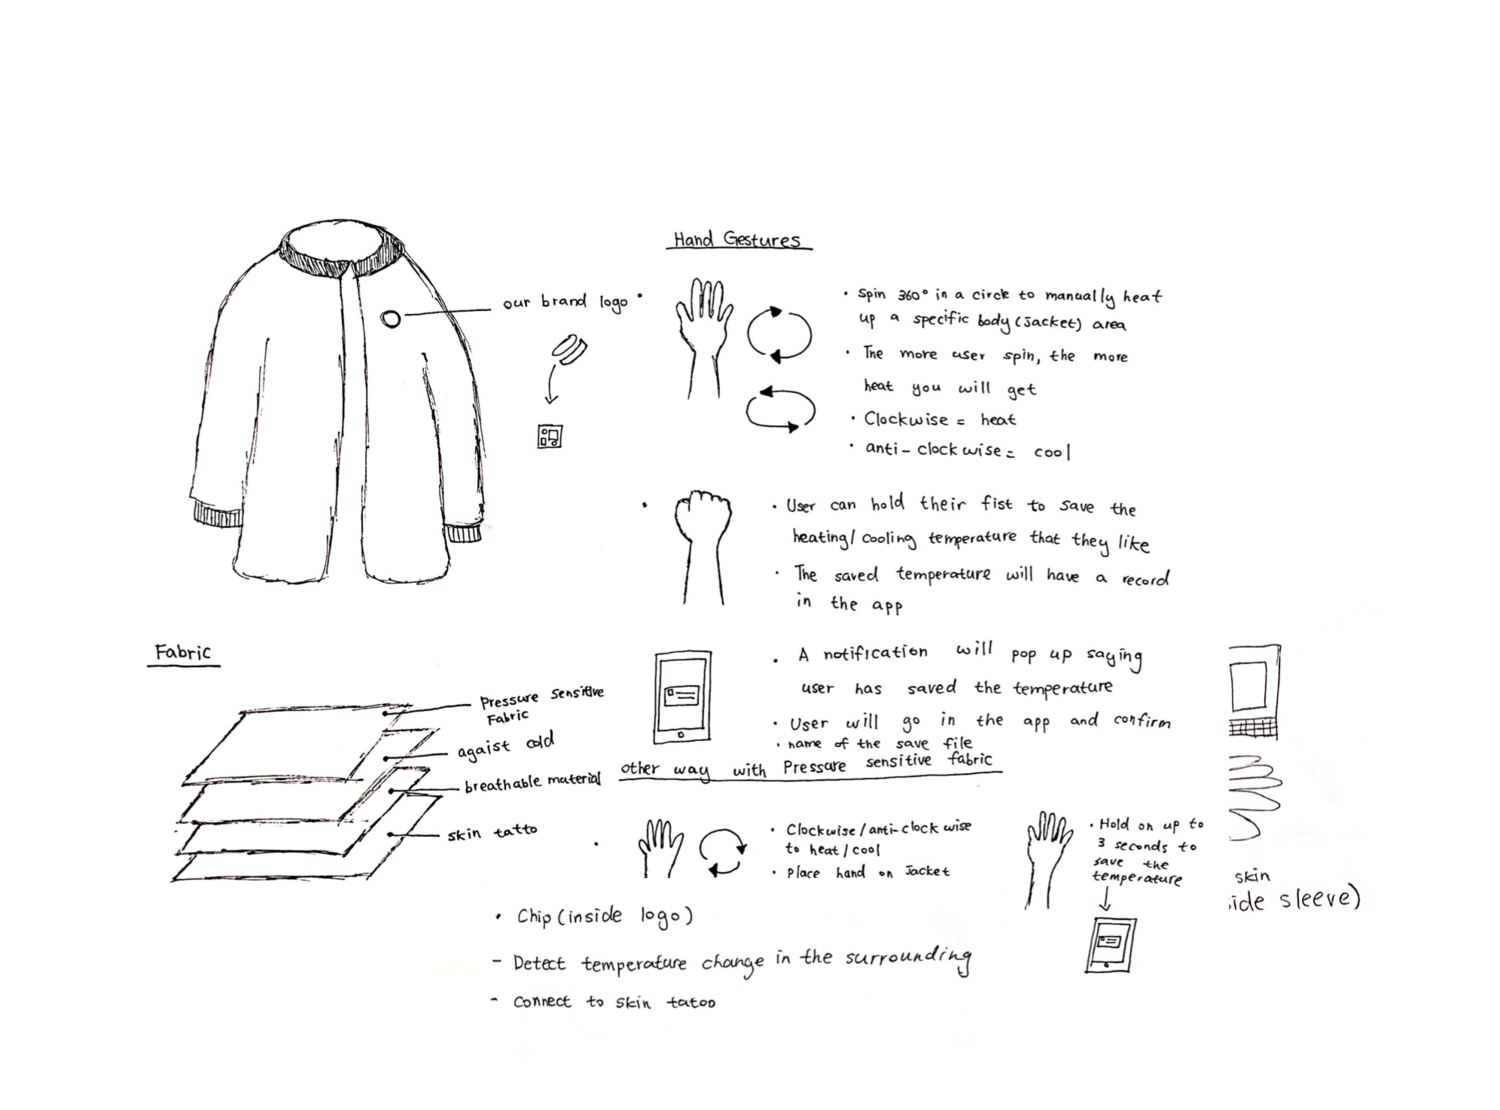 our brand logo
Hand Gestures
• Spin 360° in a circle to manually heat
up a specific body (Jacket) area
• The more user spin, the more
heat you will get
• Clockwise = heat
• anti-clockwise = cool
• User can hold their fist to save the
heating/cooling temperature that they like
• The saved temperature will have a record
in the app
• A notification will pop up saying
user has saved the temperature
• User will go in the app and confirm
• name of the save file
Fabric
Pressure sensitive
Fabric
agaist cold
breathable material
skin tatto
other way with Pressure sensitive fabric
• Clockwise/anti-clockwise
to heat/cool
• Place hand on Jacket
• Hold on up to
3 seconds to
save the
temperature
skin
ide sleeve)
• Chip (inside logo)
- Detect temperature change in the surrounding
- Connect to skin tatoo